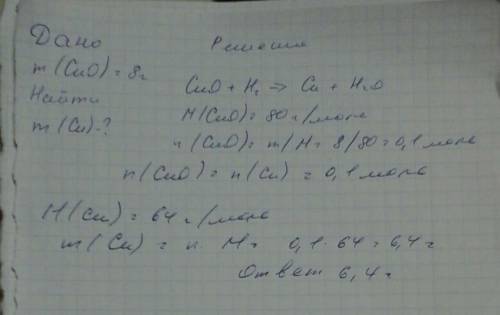 Дано
Решение
m(CuO) = 8г
CuO + H₂ => Cu + H₂O
Найти
M(CuO) = 80 г/моль
m(Cu)-?
n(CuO) = m/M = 8/80 = 0,1 моль
n(CuO) = n(Cu) = 0,1 моль
M(Cu) = 64 г/моль
m(Cu) = n · M = 0,1·64 = 6,4 г
Ответ 6,4 г